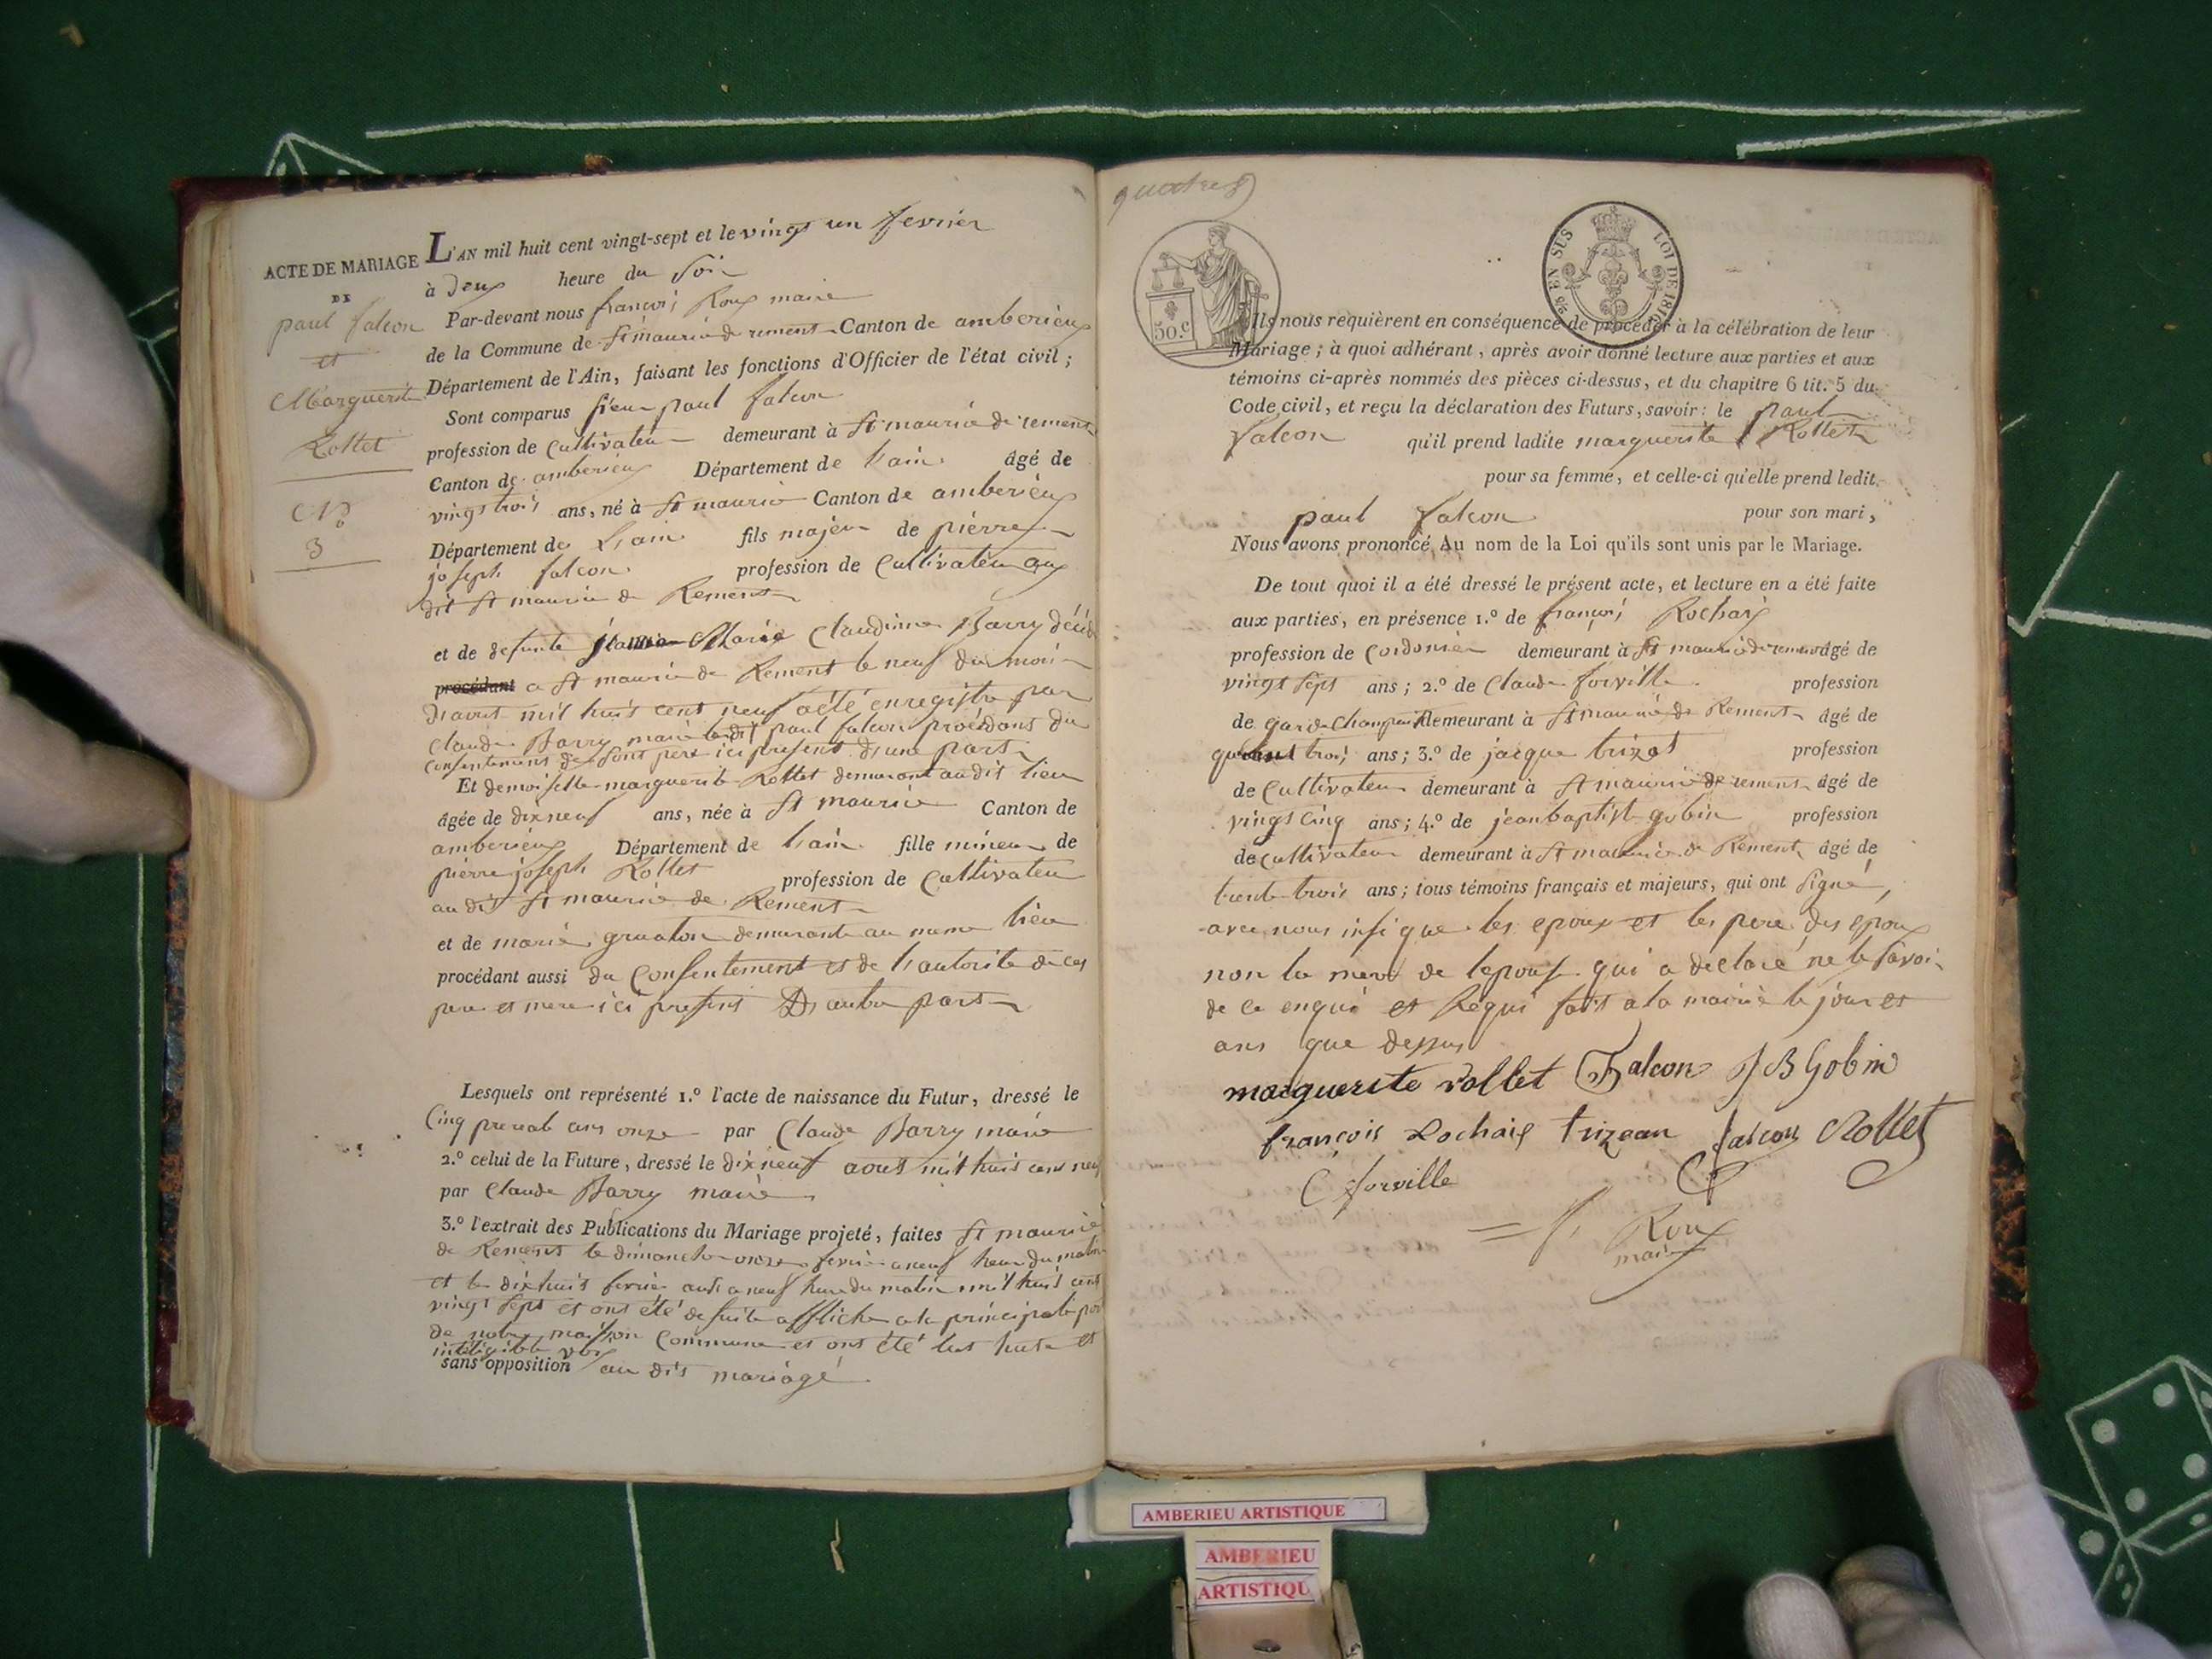 ACTE DE MARIAGE
DE
paul falcon
et
Marguerite
Rollet
N°
3
L'AN mil huit cent vingt-sept et le vingt un fevrier
à deux heure du soir
Par-devant nous françois Roux maire
de la Commune de St maurice de remens Canton de amberieux
Département de l'Ain, faisant les fonctions d'Officier de l'état civil ;
Sont comparus sieur paul falcon
profession de Cultivateur demeurant à St maurice de remens
Canton de amberieux Département de l'ain âgé de
vingt trois ans, né à St maurice Canton de amberieux
Département de L'ain fils majeur de pierre
joseph falcon profession de Cultivateur au
dit St maurice de Remens
et de defunte Marie Claudine Barry décédé
procédant a St maurice de Remens le neuf du mois
d'aout mil huit cent neuf a été enregistre par
Claude Barry maire ledit paul falcon procédant du
consentement de sont pere ici present d'une part
Et demoiselle marguerite Rollet demeurant au dit lieu
âgée de dix neuf ans, née à St maurice Canton de
amberieux Département de l'ain fille mineure de
pierre joseph Rollet profession de Cultivateur
au dit St maurice de Remens
et de marie demeurante au meme lieu
procédant aussi du Consentement et de l'autorite de ces
pere et mere ici present D'autre part
Lesquels ont représenté 1.º l'acte de naissance du Futur, dressé le
Cinq prerial ans onze par Claude Barry maire
2.º celui de la Future, dressé le dix neuf aout mil huit cent neuf
par Claude Barry maire
3.º l'extrait des Publications du Mariage projeté, faites St maurice
de Remens le dimanche onze fevrier a neuf heure du matin
et le dix huit fevrier aussi a neuf heure du matin mil huit cent
vingt sept et ont été de suite affiche a la principale porte
de notre maison Commune et ont été lus haute et
inteligible voix
sans opposition au dit mariage
quatre
50.c
EN SUS LOI DE 1816
Ils nous requièrent en conséquence de procéder à la célébration de leur
Mariage ; à quoi adhérant, après avoir donné lecture aux parties et aux
témoins ci-après nommés des pièces ci-dessus, et du chapitre 6 tit. 5 du
Code civil, et reçu la déclaration des Futurs, savoir : le paul
falcon qu'il prend ladite marguerite Rollet
pour sa femme, et celle-ci qu'elle prend ledit
paul falcon pour son mari,
Nous avons prononcé Au nom de la Loi qu'ils sont unis par le Mariage.
De tout quoi il a été dressé le présent acte, et lecture en a été faite
aux parties, en présence 1.º de françois Rochaix
profession de Cordonier demeurant à St maurice de remens âgé de
vingt sept ans ; 2.º de Claude forville profession
de garde Champetre demeurant à St maurice de Remens âgé de
trois ans ; 3.º de jacque trizat profession
de Cultivateur demeurant à St maurice de remens âgé de
vingt Cinq ans ; 4.º de jean baptist gobin profession
de cultivateur demeurant à St maurice de Remens âgé de
trente trois ans ; tous témoins français et majeurs, qui ont signé,
avec nous insi que les epoux et les pere des epoux
non la mere de lepouse qui a déclaré ne le savoir
de ce enquis et Requi fait a la mairie le jour et
ans que dessus
marguerite rollet Falcon J B Gobin
françois Rochaix trizean falcon Rollet
C forville
= f. Roux
maire
AMBERIEU ARTISTIQUE
AMBERIEU
ARTISTIQU